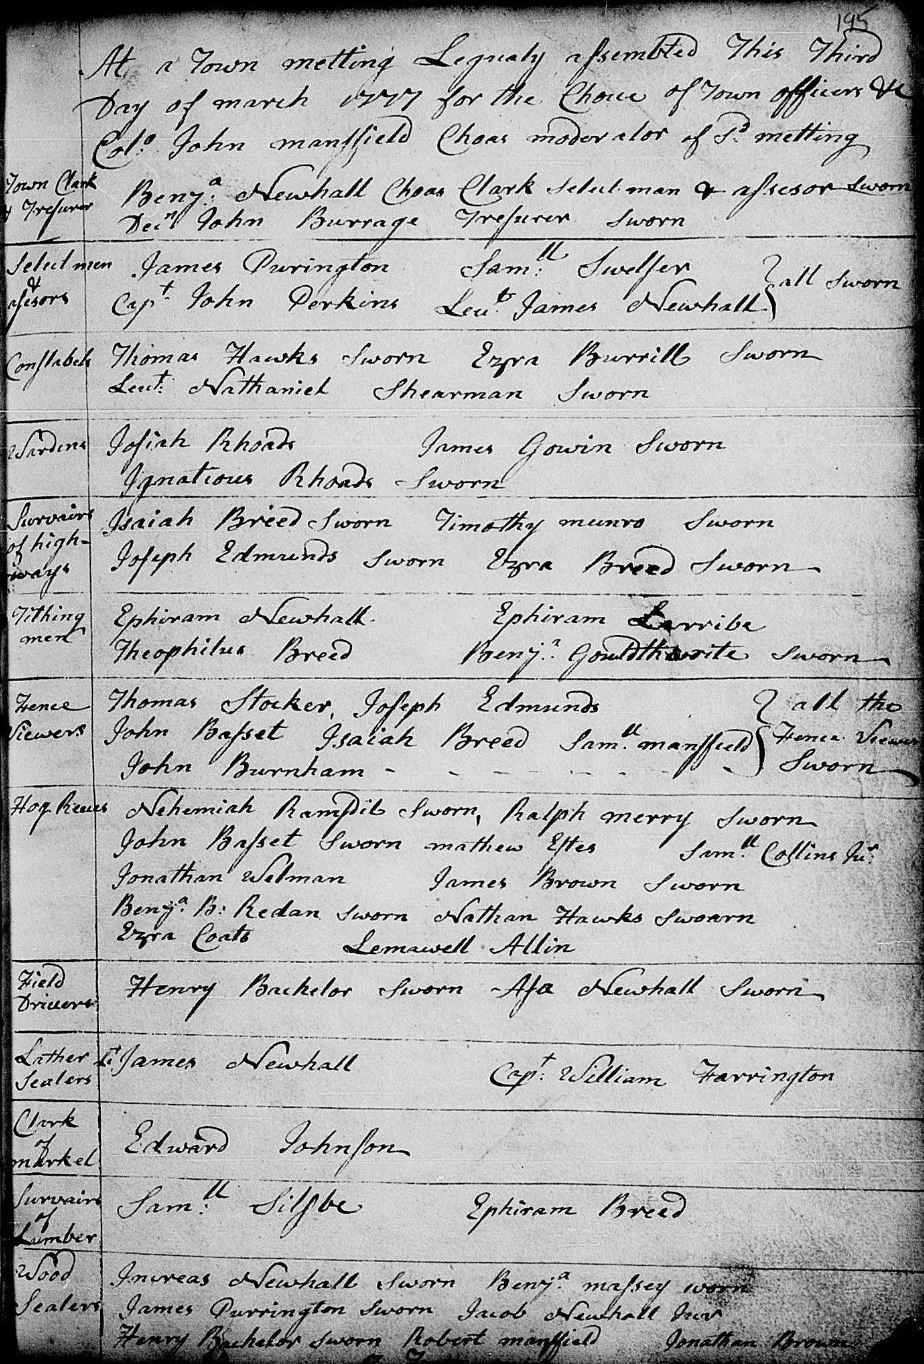 195
At a Town metting Legualy assembled This Third
Day of march 1777 for the Choice of Town officers &c
Colo. John mansfield Choas moderator of sd. metting
Town Clark & Tresurer
Benja. Newhall Choas Clark Select man & assesor Sworn
Decn John Burrage Tresurer Sworn
Select men & assesors
James Purington Samll. Swetser } all Sworn
Capt. John Perkins Leut. James Newhall
Constabels
Thomas Hawks Sworn Ezra Burrill Sworn
Leut. Nathaniel Shearman Sworn
Wardens
Josiah Rhoads James Gowin Sworn
Ignatious Rhoads Sworn
Survairs of high-ways
Isaiah Breed Sworn Timothy munro Sworn
Joseph Edmunds Sworn Ezra Breed Sworn
Tithing men
Ephiram Newhall Ephiram Larribe
Theophilus Breed Benja. Gouldthwrite Sworn
Fence Viewers
Thomas Stocker, Joseph Edmunds } all the
John Basset Isaiah Breed Samll. mansfield Fence Viewers
John Burnham - - - - - - Sworn
Hog Reeves
Nehemiah Ramsdil Sworn, Ralph merry Sworn
John Basset Sworn mathew Estes Samll. Collins Jur.
Jonathan Welman James Brown Sworn
Benja. B: Redan Sworn Nathan Hawks Swoarn
Ezra Coats Lemuwell Allin
Field Drivers
Henry Bachelor Sworn Asa Newhall Sworn
Lather Sealers
Lt. James Newhall Capt. William Farrington
Clark of market
Edward Johnson
Survairs of Lumber
Samll. Silsbe Ephiram Breed
Wood Sealers
Increas Newhall Sworn Benja. massey worn
James Purrington Sworn Jacob Newhall Juor
Henry Bachelor Sworn Robert mansfield Jonathan Brown